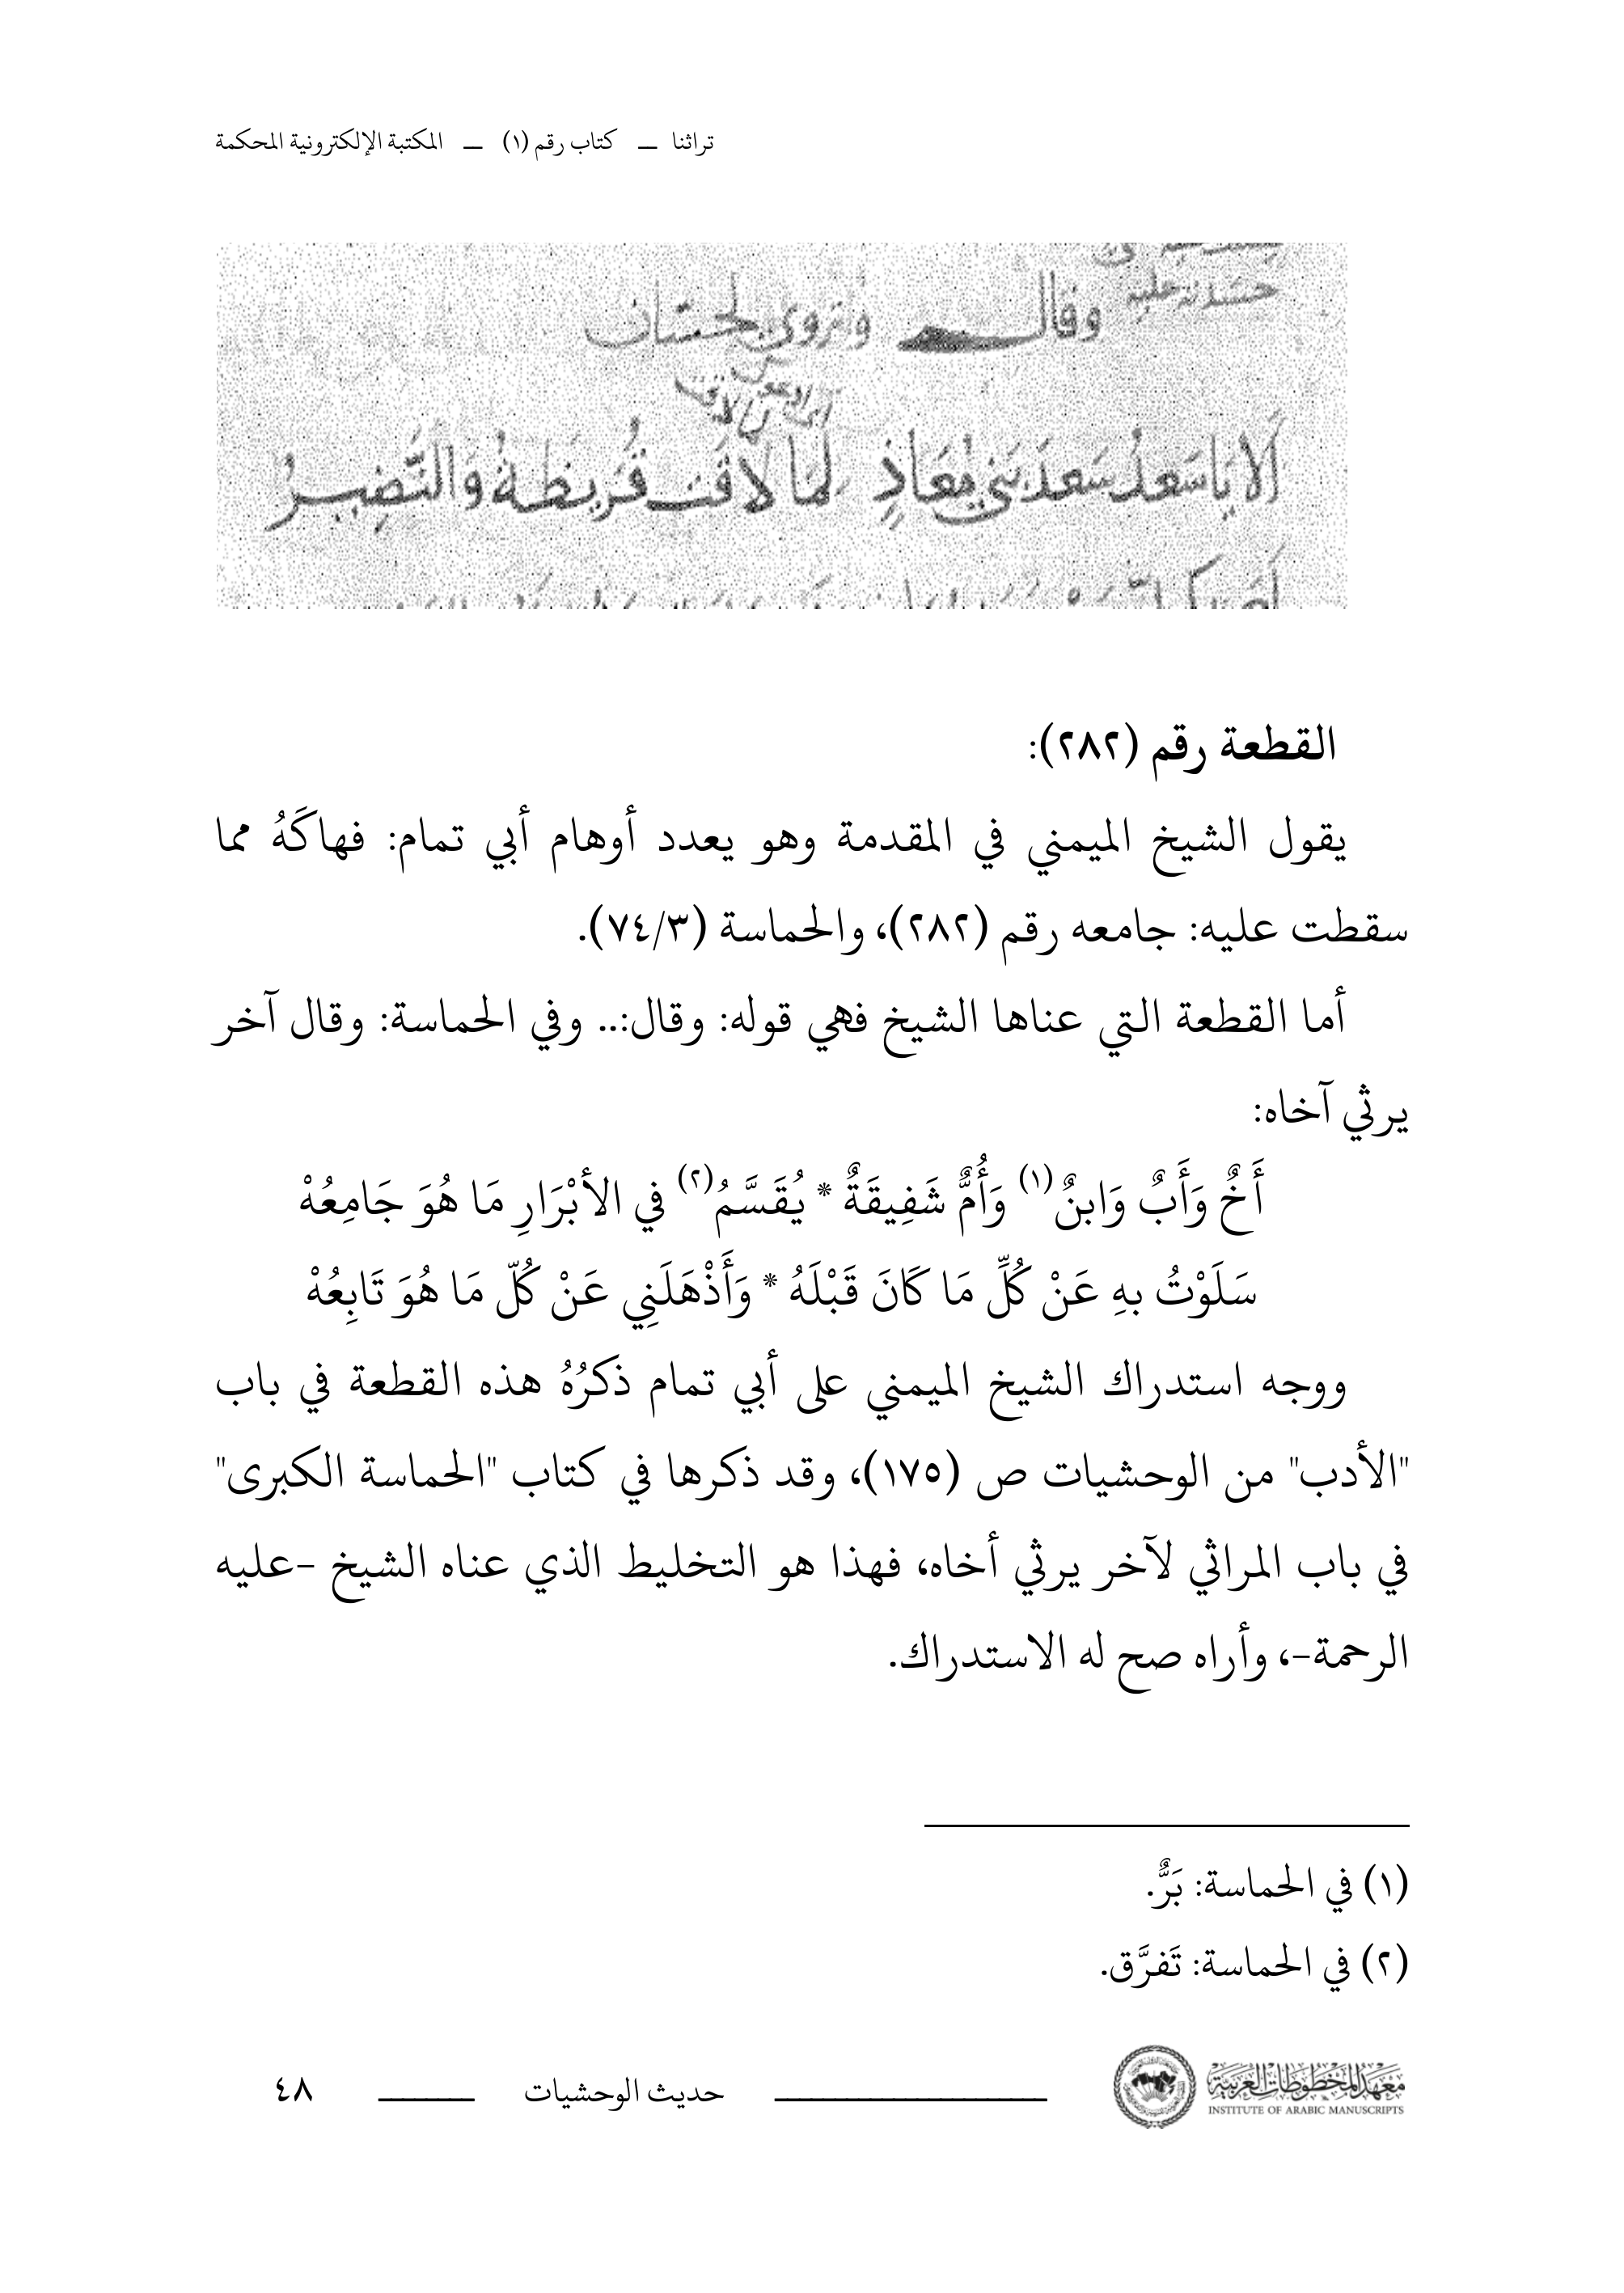 تراثنا — كتاب رقم (١) — المكتبة الإلكترونية المحكمة
وقال ويروى لحسان
ألا يا سعدُ سعدَ بني مُعَاذٍ لمَا لاقَت قُرَيظَةُ وَالنَّضِيرُ
القطعة رقم (٢٨٢):
يقول الشيخ الميمني في المقدمة وهو يعدد أوهام أبي تمام: فهاكَهُ مما
سقطت عليه: جامعه رقم (٢٨٢)، والحماسة (٧٤/٣).
أما القطعة التي عناها الشيخ فهي قوله: وقال:.. وفي الحماسة: وقال آخر
يرثي آخاه:
أَخٌ وَأَبٌ وَابنٌ(١) وَأُمٌّ شَفِيقَةٌ * يُقَسَّمُ(٢) في الأبْرَارِ مَا هُوَ جَامِعُهْ
سَلَوْتُ بهِ عَنْ كُلِّ مَا كَانَ قَبْلَهُ * وَأَذْهَلَنِي عَنْ كُلّ مَا هُوَ تَابِعُهْ
ووجه استدراك الشيخ الميمني على أبي تمام ذكرُهُ هذه القطعة في باب
"الأدب" من الوحشيات ص (١٧٥)، وقد ذكرها في كتاب "الحماسة الكبرى"
في باب المراثي لآخر يرثي أخاه، فهذا هو التخليط الذي عناه الشيخ -عليه
الرحمة-، وأراه صح له الاستدراك.
(١) في الحماسة: بَرٌّ.
(٢) في الحماسة: تَفرَّق.
معهد المخطوطات العربية
INSTITUTE OF ARABIC MANUSCRIPTS
حديث الوحشيات
٤٨